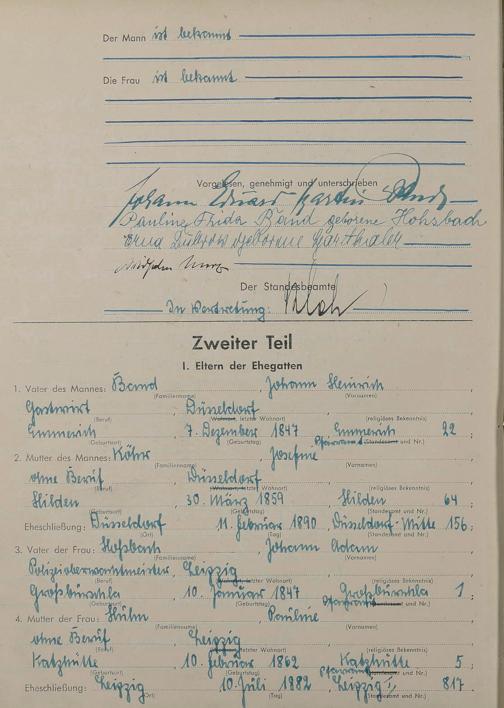 Der Mann ist bekannt
Die Frau ist bekannt
Vorgelesen, genehmigt und unterschrieben
Johann Eduard Martin Band
Pauline Frida Band geborene Hoßbach
Erna geborene
Der Standesbeamte
In Vertretung:
Zweiter Teil
I. Eltern der Ehegatten
1. Vater des Mannes: Band, Johann Heinrich
(Familienname) (Vornamen)
Gastwirt, Düsseldorf
(Beruf) (Wohnort, letzter Wohnort) (religiöses Bekenntnis)
Emmerich, 7. Dezember 1847, Emmerich 22;
(Geburtsort) (Geburtstag) Pfarramt (Standesamt und Nr.)
2. Mutter des Mannes: Köhr, Josefine
(Familienname) (Vornamen)
ohne Beruf, Düsseldorf
(Beruf) (Wohnort, letzter Wohnort) (religiöses Bekenntnis)
Hilden, 30. März 1859, Hilden 64;
(Geburtsort) (Geburtstag) (Standesamt und Nr.)
Eheschließung: Düsseldorf, 11. Februar 1890, Düsseldorf-Mitte 156;
(Ort) (Tag) (Standesamt und Nr.)
3. Vater der Frau: Hoßbach, Johann Adam
(Familienname) (Vornamen)
Polizeioberwachtmeister, Leipzig
(Beruf) (Wohnort, letzter Wohnort) (religiöses Bekenntnis)
Großburschla, 10. Januar 1847, Großburschla 1;
(Geburtsort) (Geburtstag) Pfarramt (Standesamt und Nr.)
4. Mutter der Frau: Pauline
(Familienname) (Vornamen)
ohne Beruf, Leipzig
(Beruf) (Wohnort, letzter Wohnort) (religiöses Bekenntnis)
Katzhütte, 10. Februar 1862, Katzhütte 5;
(Geburtsort) (Geburtstag) Pfarramt (Standesamt und Nr.)
Eheschließung: Leipzig, 10. Juli 1882, Leipzig 817
(Ort) (Tag) (Standesamt und Nr.)